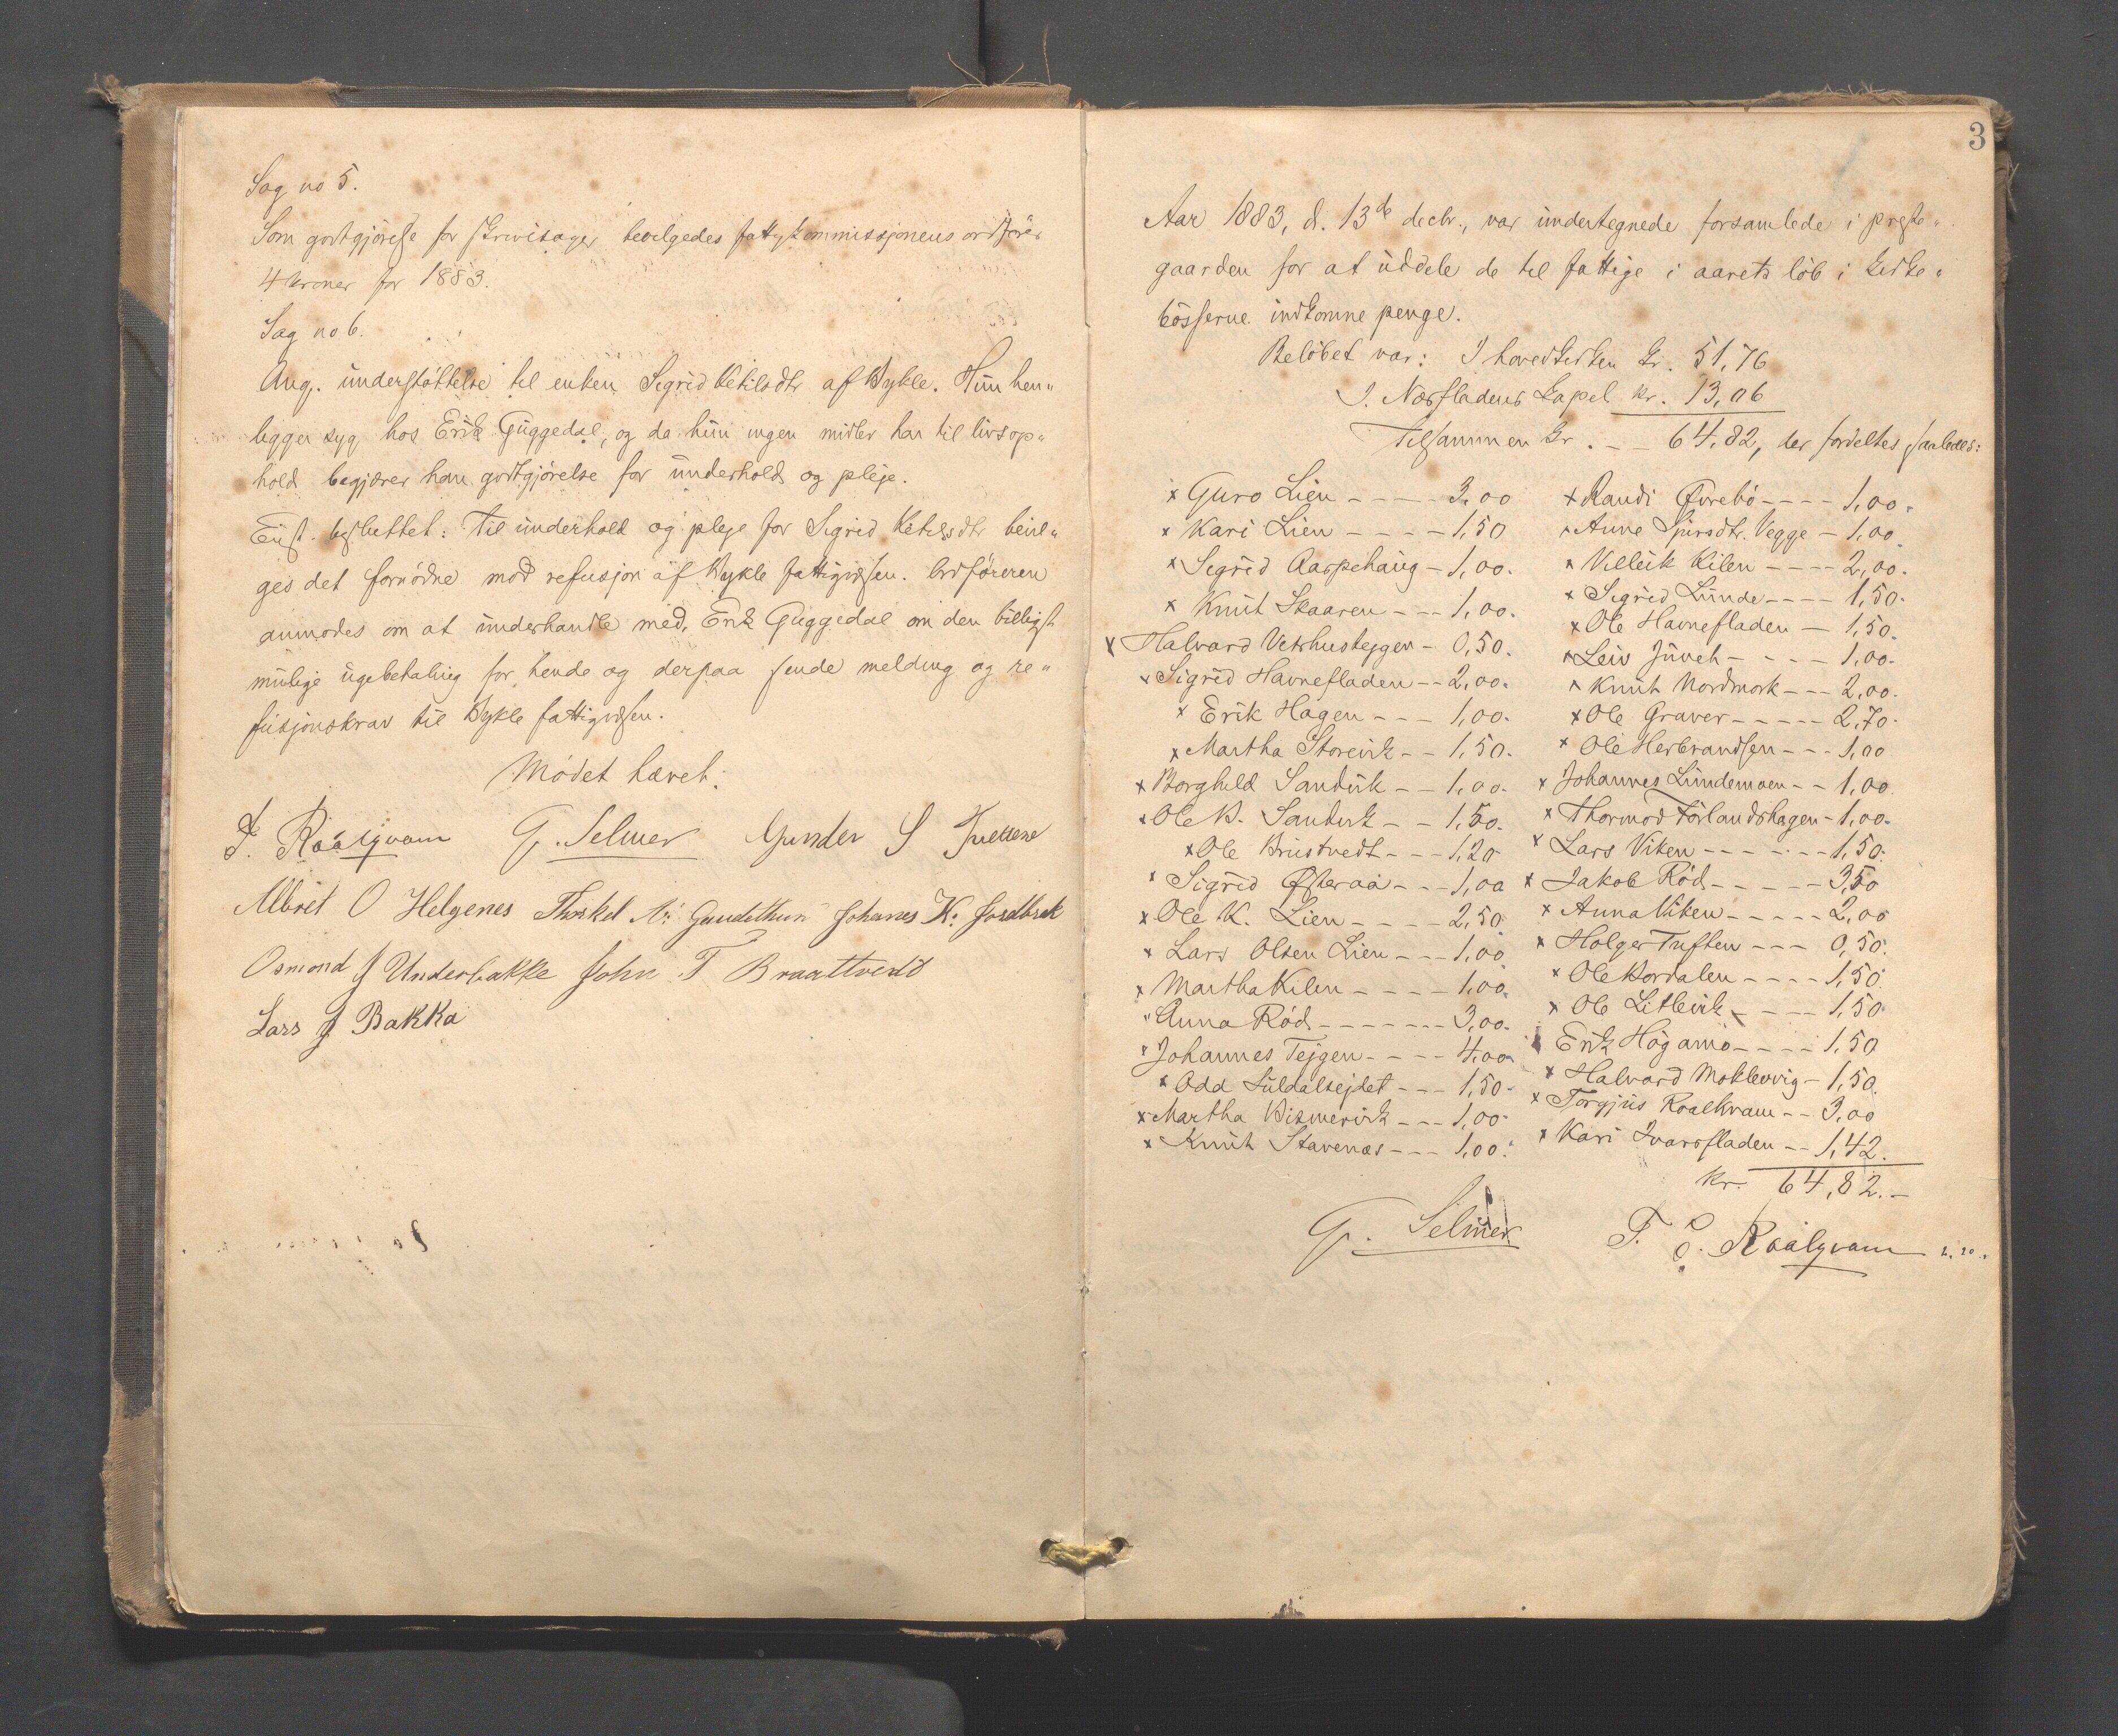 Sag no 5.
Som godtgjörelse for skrivisager bevilgedes fattigkommissjonens ordförer
4 kroner for 1883.
Sag no 6.
Ang. understöttelse til enken Sigrid Ketilsdtr af Bykle. Hun hen„
ligger syg hos Erik Guggedal, og da hun ingen midler har til livsop„
hold begjærer han godtgjörelse for underhold og pleje.
Enst. besluttet: Til underhold og pleje for Sigrid Ketilsdtr bevil„
ges det fornödne mod refusjon af Bykle fattigvæsen. Ordföreren
anmodes om at underhandle med Erik Guggedal om den billigst
mulige ugebetaling for hende og derpaa sende melding og re„
fusjonskrav til Bykle fattigvæsen.
Mödet hævet.
Roalqvam G. Selmer Gunder S
Albret O Helgenes Thorkel Johanes K.
Osmond J Underbakke John T Braattvedt
Lars J Bakka
3
Aar 1883, d. 13de decbr., var undertegnede forsamlede i preste„
gaarden for at uddele de til fattige i aarets löb i kirke„
bösserne indkomne penge.
Belöbet var: I hovedkirken kr. 51,76
I. Næsfladens kapel kr. 13,06
Tilsammen kr. – – 64,82, der fordeltes saaledes:
x Guro Lien - - - - 3,00
x Kari Lien - - - - 1,50
x Sigrid Aarpehaug - 1,00.
x Knut Skaaren - - - 1,00.
x Halvard Vetrhusteggen - 0,50.
x Sigrid Havnefladen - - 2,00.
x Erik Hagen - - - 1,00.
x Martha Storevik - - 1,50.
x Borghild Sandvik - - 1,00.
x Ole B. Sandvik - - 1,50.
x Ole Brustvedt - - - 1,20
x Sigrid Østeraa - - - 1,00
x Ole K. Lien - - - - 2,50.
x Lars Olsen Lien - - - 1,00.
x Martha Kilen - - - - 1,00.
x Anna Röd - - - - - - - 3,00.
x Johannes Tejgen - - - - 4,00
x Odd Suldalsejdet - - - 1,50
x Martha Vismervik - - - 1,00
x Knut Stavenæs - - - 1,00.
x Randi Øvrebö - - - - 1,00.
x Anne Sjursdtr. Vegge - 1,00
x Velleik Kilen - - - - 2,00.
x Sigrid Lunde - - - - 1,50.
x Ole Havnefladen - 1,50.
x Leiv Juveh - - - - 1,00.
x Knut Nordmork - - - 2,00.
x Ole Graver - - - - - 2,70.
x Ole Herbrandsen - - - 1,00
x Johannes Lundemoen - - 1,00.
x Thormod Förlandshagen - 1,00.
x Lars Viken - - - - - - 1,50.
x Jakob Röd - - - - - 3,50
x Anna Viken - - - - - 2,00
x Holger Tuften - - - 0,50.
x Ole Nordalen - - - - 1,50.
x Ole Litlevik - - - 1,50
Erik Högamo - - - - 1,50
x Halvard Moklevvig - 1,50.
x Torgjus Roalkvam - - 3,00
x Kari Ivarsfladen - - 1,42.
kr. 64,82.-
G. Selmer T. O. Roalqvam